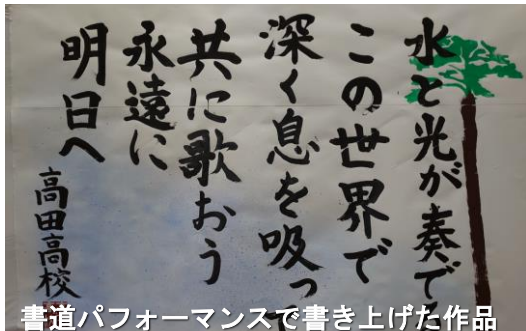 水と光が奏でる
この世界で
深く息を吸って
共に歌おう
永遠に
明日へ
高田高校
書道パフォーマンスで書き上げた作品